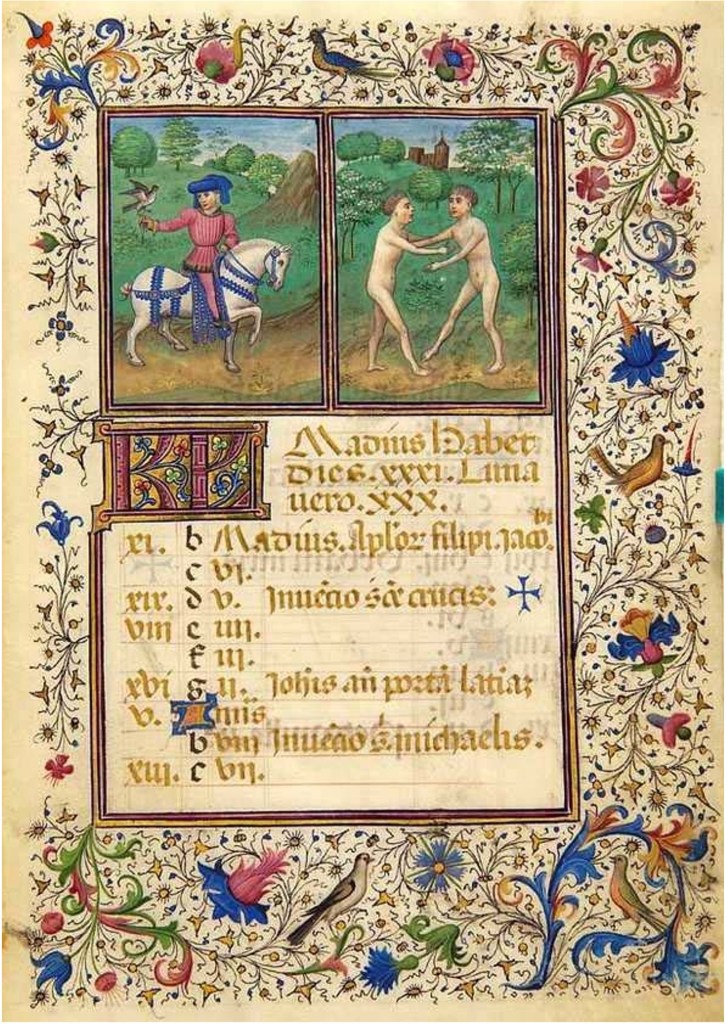 KL Madius habet
dies.xxxi.Luna
vero.xxx.
xi. b Madius. Aplor filipi. jacobi
c vi.
xix. d v. Inuēcio s̄cē crucis:
viii e iiii.
f iii.
xvi g ii. Johis añ portā latiaz
v. A Nūs
b viii Inuēcio s̄. michaelis.
xiii. c vii.